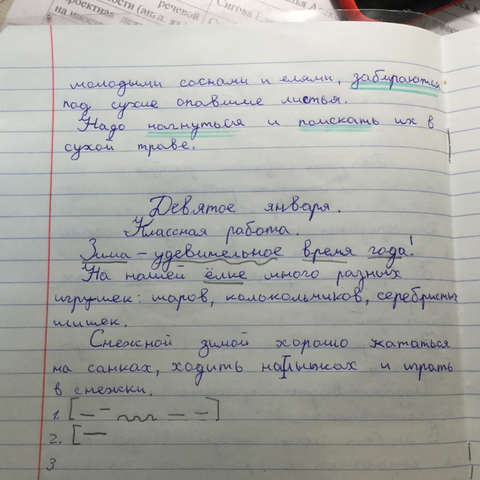 речевой
ности (англ. яз
проектная дея
на иност
Сигова Еле
молодыми соснами и елями, забираются
под сухие опавшие листья.
Надо нагнуться и поискать их в
сухой траве.
Девятое января.
Классная работа.
Зима – удевительное время года!
На нашей ёлке много разных
игрушек: шаров, колокольчиков, серебристых
шишек.
Снежной зимой хорошо кататься
на санках, ходить на лыжах и играть
в снежки.
1.
2.
3